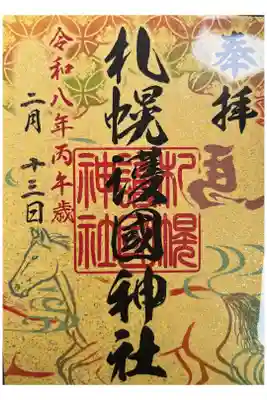 奉拝
馬
札幌護國神社
札幌護國神社
令和八年丙午歳
二月 十三日